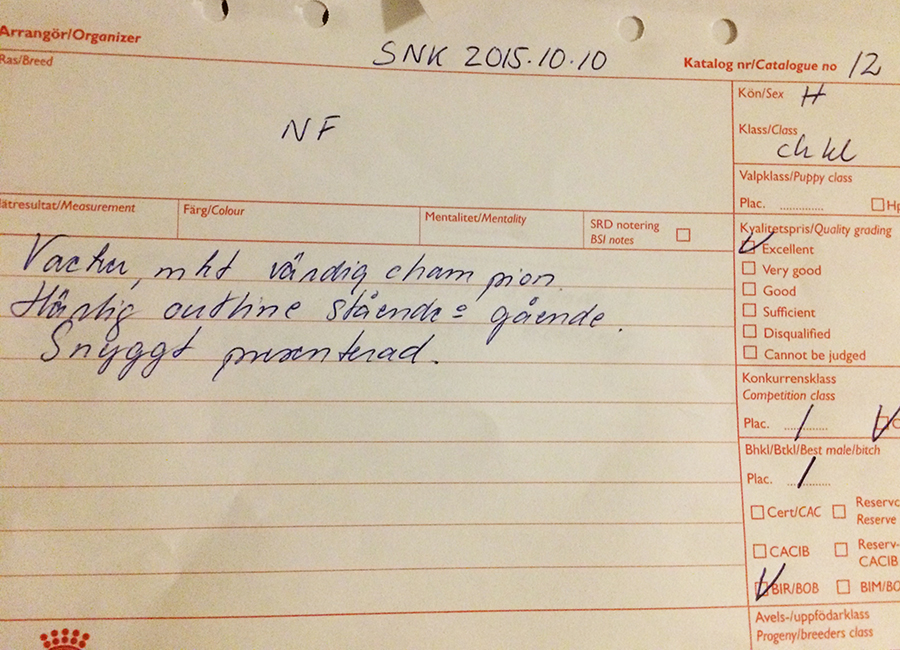 Arrangör/Organizer
SNK 2015.10.10
Katalog nr/Catalogue no 12
Ras/Breed
NF
Kön/Sex H
Klass/Class
ch kl
Valpklass/Puppy class
Plac. ............ Hp
Mätresultat/Measurement
Färg/Colour
Mentalitet/Mentality
SRD notering
BSI notes
Kvalitetspris/Quality grading
Excellent
Very good
Good
Sufficient
Disqualified
Cannot be judged
Vacker, mkt värdig champion.
Härlig outline stående o gående.
Snyggt presenterad.
Konkurrensklass
Competition class
Plac. 1
Bhkl/Btkl/Best male/bitch
Plac. 1
Cert/CAC
Reserve
CACIB
Reserv-
CACIB
BIR/BOB
BIM/BO
Avels-/uppfödarklass
Progeny/breeders class